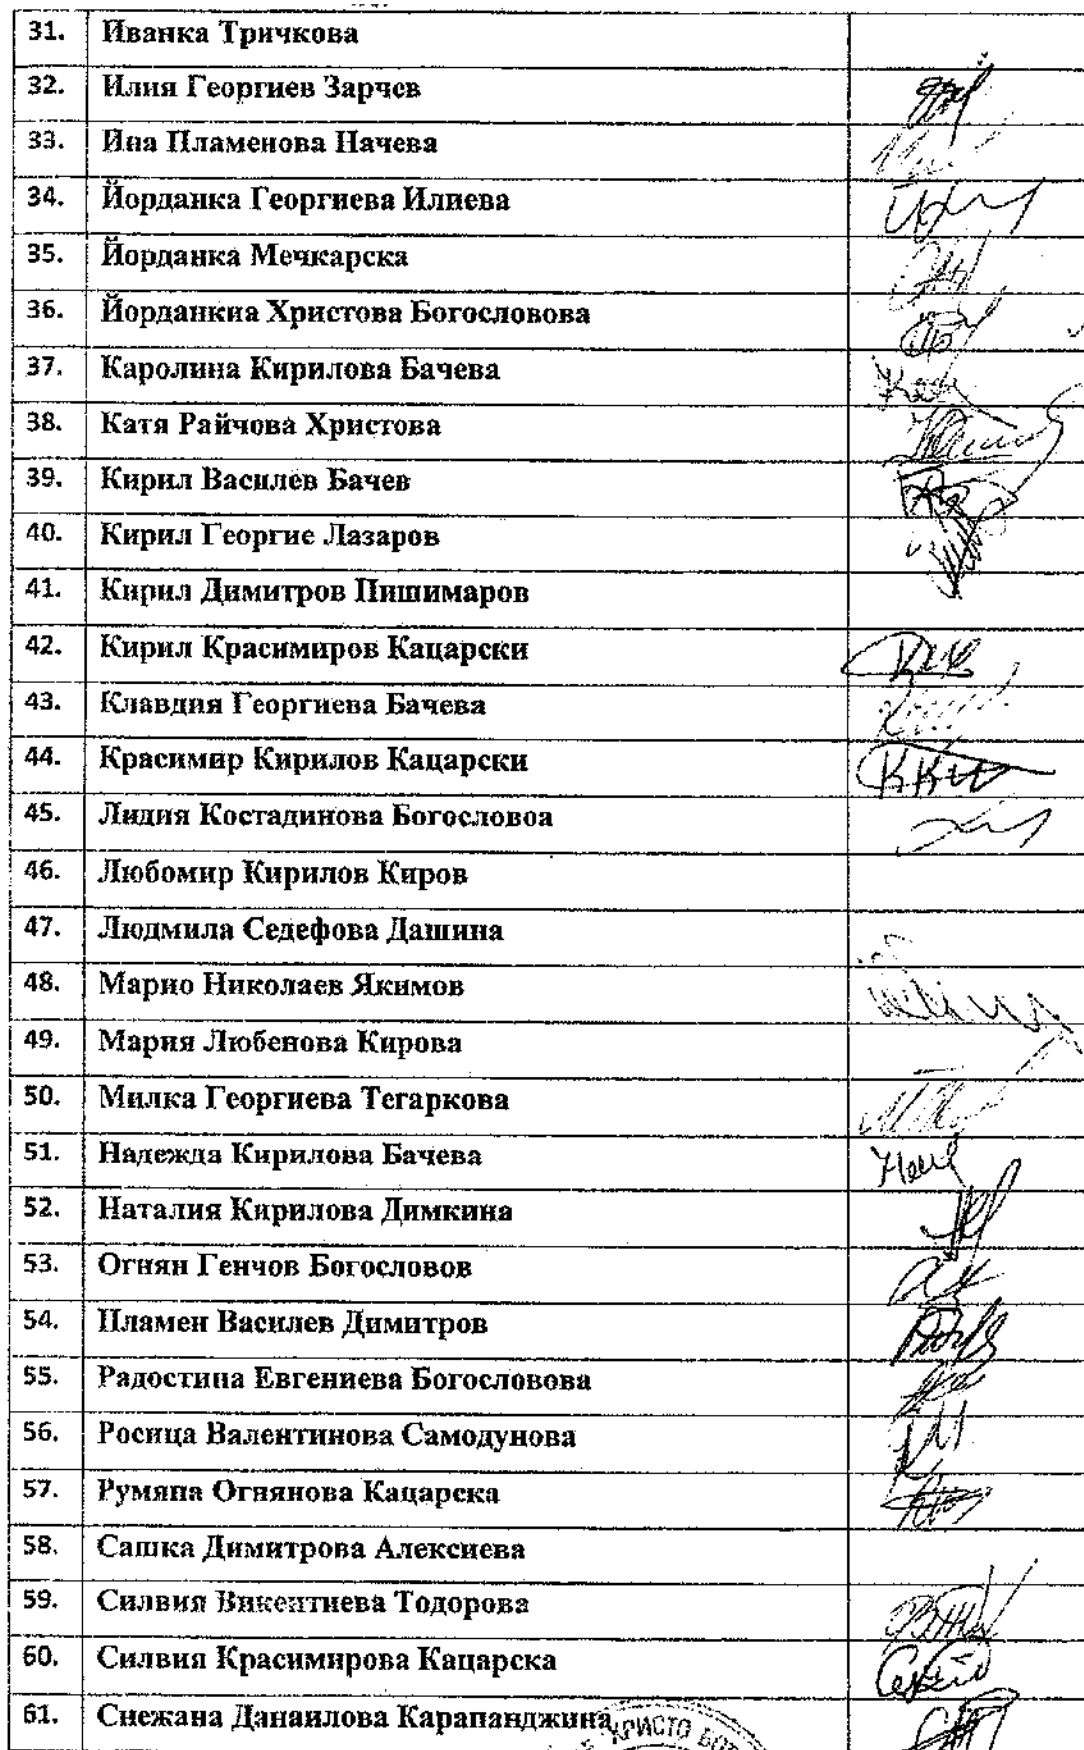 31. Иванка Тричкова
32. Илия Георгиев Зарчев
33. Ина Пламенова Начева
34. Йорданка Георгиева Илиева
35. Йорданка Мечкарска
36. Йорданкиа Христова Богословова
37. Каролина Кирилова Бачева
38. Катя Райчова Христова
39. Кирил Василев Бачев
40. Кирил Георгие Лазаров
41. Кирил Димитров Пишимаров
42. Кирил Красимиров Кацарски
43. Клавдия Георгиева Бачева
44. Красимир Кирилов Кацарски
45. Лидия Костадинова Богословоа
46. Любомир Кирилов Киров
47. Людмила Седефова Дашина
48. Марио Николаев Якимов
49. Мария Любенова Кирова
50. Милка Георгиева Тегаркова
51. Надежда Кирилова Бачева
52. Наталия Кирилова Димкина
53. Огнян Генчов Богословов
54. Пламен Василев Димитров
55. Радостина Евгениева Богословова
56. Росица Валентинова Самодунова
57. Румяна Огнянова Кацарска
58. Сашка Димитрова Алексиева
59. Силвия Викентиева Тодорова
60. Силвия Красимирова Кацарска
61. Снежана Данаилова Карапанджина
ХРИСТО